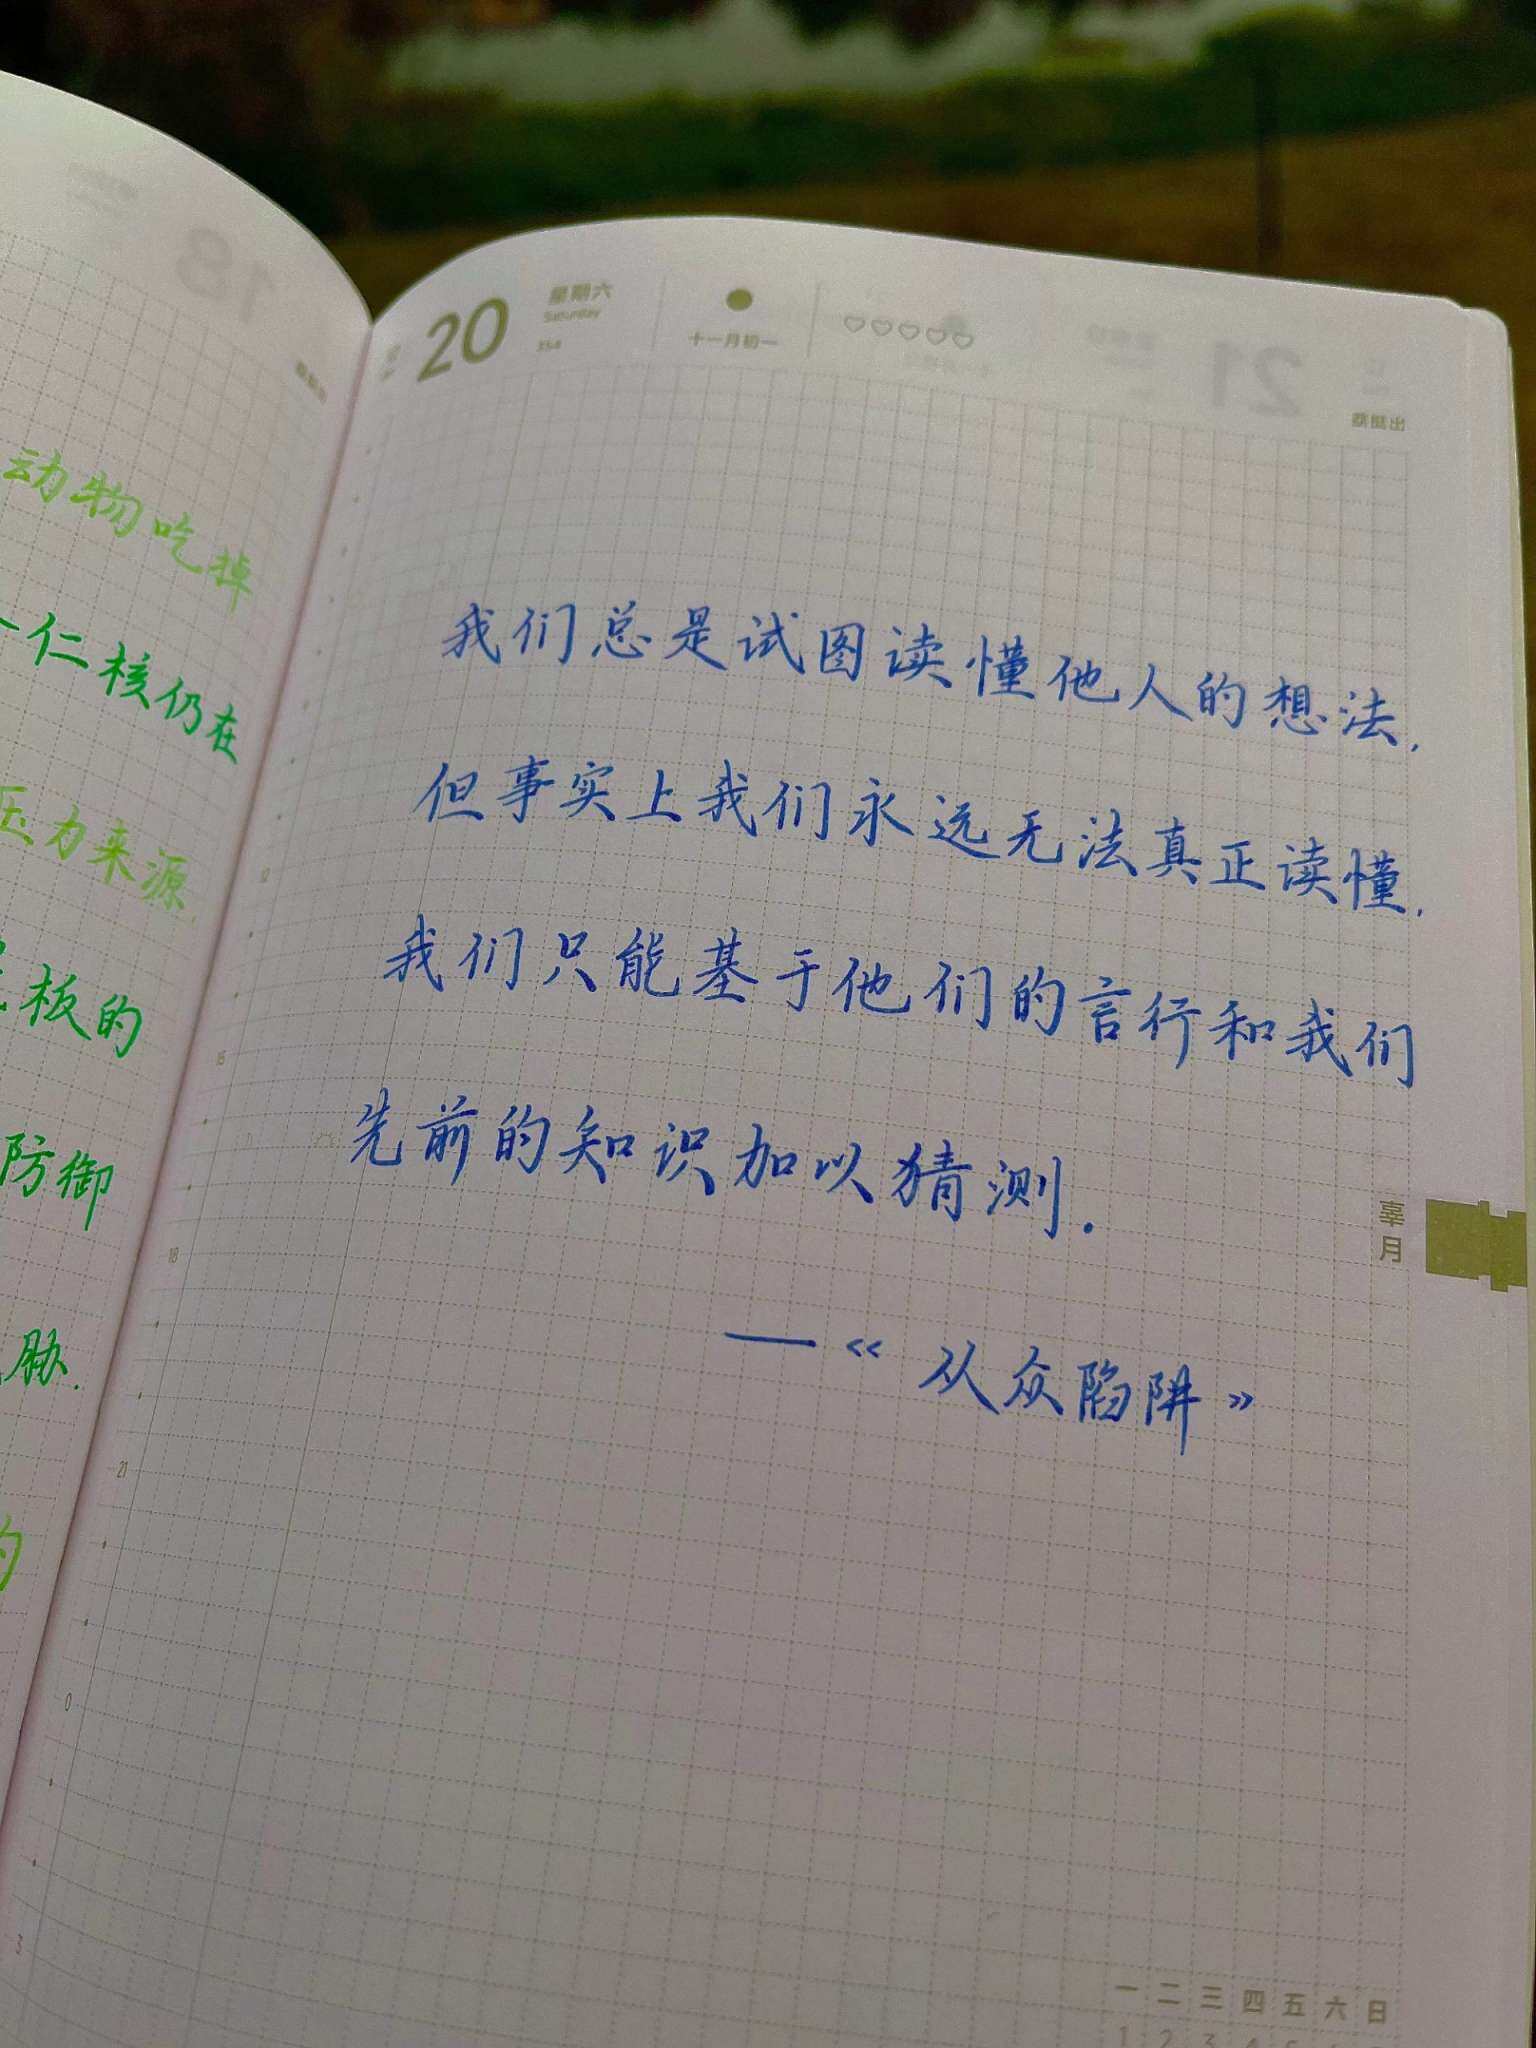 动物吃掉
仁核仍在
压力来源,
板的
防御
胁.
的
18
20
星期六
Saturday
354
十一月初一
21
荔挺出
我们总是试图读懂他人的想法,
但事实上我们永远无法真正读懂,
我们只能基于他们的言行和我们
先前的知识加以猜测.
—《从众陷阱》
辜月
12
15
18
21
0
3
一 二 三 四 五 六 日
1 2 3 4 5 6 7